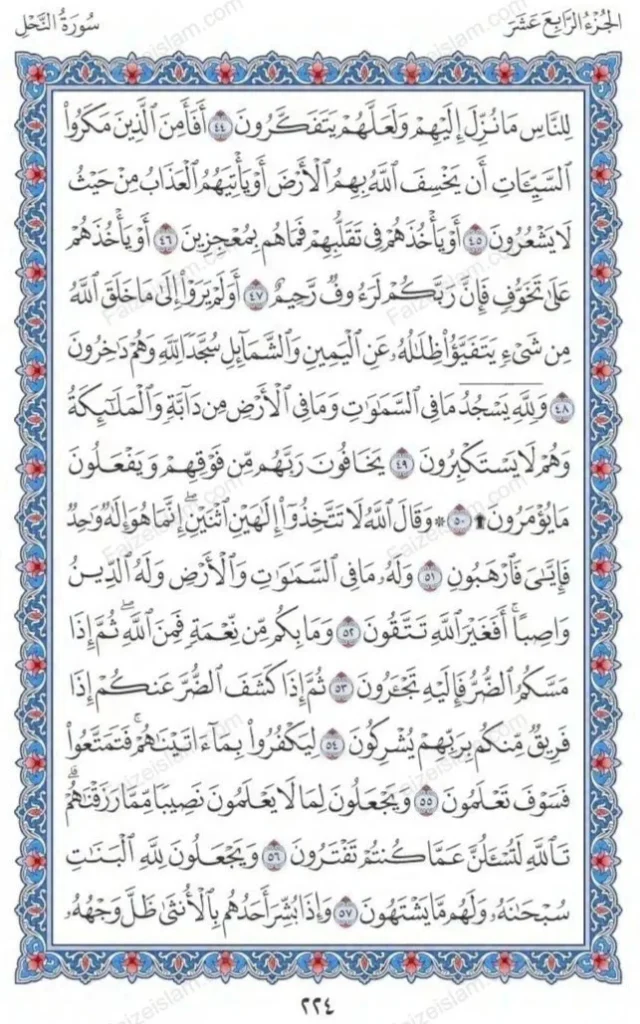 الجُزْءُ الرَّابِعَ عَشَرَ
سُورَةُ النَّحْلِ
لِلنَّاسِ مَا نُزِّلَ إِلَيْهِمْ وَلَعَلَّهُمْ يَتَفَكَّرُونَ ٤٤ أَفَأَمِنَ ٱلَّذِينَ مَكَرُوا۟
ٱلسَّيِّـَٔاتِ أَن يَخْسِفَ ٱللَّهُ بِهِمُ ٱلْأَرْضَ أَوْ يَأْتِيَهُمُ ٱلْعَذَابُ مِنْ حَيْثُ
لَا يَشْعُرُونَ ٤٥ أَوْ يَأْخُذَهُمْ فِى تَقَلُّبِهِمْ فَمَا هُم بِمُعْجِزِينَ ٤٦ أَوْ يَأْخُذَهُمْ
عَلَىٰ تَخَوُّفٍ فَإِنَّ رَبَّكُمْ لَرَءُوفٌ رَّحِيمٌ ٤٧ أَوَلَمْ يَرَوْا۟ إِلَىٰ مَا خَلَقَ ٱللَّهُ
مِن شَىْءٍ يَتَفَيَّؤُا۟ ظِلَـٰلُهُۥ عَنِ ٱلْيَمِينِ وَٱلشَّمَآئِلِ سُجَّدًا لِّلَّهِ وَهُمْ دَٰخِرُونَ
٤٨ وَلِلَّهِ يَسْجُدُ مَا فِى ٱلسَّمَـٰوَٰتِ وَمَا فِى ٱلْأَرْضِ مِن دَآبَّةٍ وَٱلْمَلَـٰٓئِكَةُ
وَهُمْ لَا يَسْتَكْبِرُونَ ٤٩ يَخَافُونَ رَبَّهُم مِّن فَوْقِهِمْ وَيَفْعَلُونَ
مَا يُؤْمَرُونَ ۩ ٥٠ ۞ وَقَالَ ٱللَّهُ لَا تَتَّخِذُوٓا۟ إِلَـٰهَيْنِ ٱثْنَيْنِ ۖ إِنَّمَا هُوَ إِلَـٰهٌ وَٰحِدٌ
فَإِيَّـٰىَ فَٱرْهَبُونِ ٥١ وَلَهُۥ مَا فِى ٱلسَّمَـٰوَٰتِ وَٱلْأَرْضِ وَلَهُ ٱلدِّينُ
وَاصِبًا ۚ أَفَغَيْرَ ٱللَّهِ تَتَّقُونَ ٥٢ وَمَا بِكُم مِّن نِّعْمَةٍ فَمِنَ ٱللَّهِ ۖ ثُمَّ إِذَا
مَسَّكُمُ ٱلضُّرُّ فَإِلَيْهِ تَجْـَٔرُونَ ٥٣ ثُمَّ إِذَا كَشَفَ ٱلضُّرَّ عَنكُمْ إِذَا
فَرِيقٌ مِّنكُم بِرَبِّهِمْ يُشْرِكُونَ ٥٤ لِيَكْفُرُوا۟ بِمَآ ءَاتَيْنَـٰهُمْ ۚ فَتَمَتَّعُوا۟
فَسَوْفَ تَعْلَمُونَ ٥٥ وَيَجْعَلُونَ لِمَا لَا يَعْلَمُونَ نَصِيبًا مِّمَّا رَزَقْنَـٰهُمْ ۗ
تَٱللَّهِ لَتُسْـَٔلُنَّ عَمَّا كُنتُمْ تَفْتَرُونَ ٥٦ وَيَجْعَلُونَ لِلَّهِ ٱلْبَنَـٰتِ
سُبْحَـٰنَهُۥ ۙ وَلَهُم مَّا يَشْتَهُونَ ٥٧ وَإِذَا بُشِّرَ أَحَدُهُم بِٱلْأُنثَىٰ ظَلَّ وَجْهُهُۥ
٢٢٤
Faizeislam.com